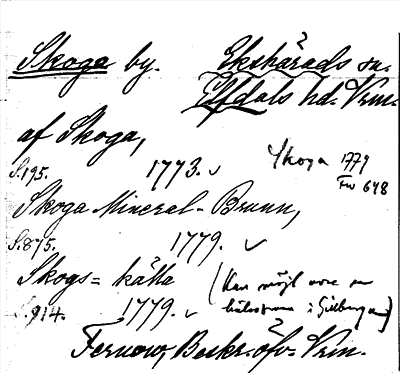 Skoga by. Ekshärads sn.
Elfdals hd. Vrm.
af Skoga,
S. 195. 1773. ✓ Skoga 1779
Fw 648
Skoga Mineral-Brunn,
S. 875. 1779. ✓
Skogs=källa (Kan möjl vara en
S. 914. 1779. ✓ i Gillberga)
Fernow, Beskr. öfv. Vrm.